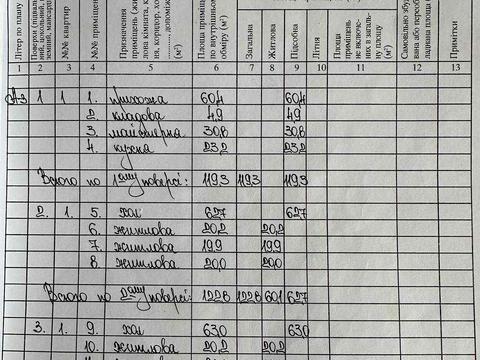 Літер по плану
Поверхи
№№ квартир
№№ приміщень
Призначення
приміщень
лова кімната,
(м²)
Площа приміщень
по внутрішньому
обміру (м²)
Загальна
Житлова
Підсобна
Літня
Площа
приміщень
не включених
в загальну
площу
(м²)
Самовільно
Примітки
1 2 3 4 5 6 7 8 9 10 11 12 13
А3 1 1 1. прихожа 60,4 60,4
2. кладова 4,9 4,9
3. майстерня 30,8 30,8
4. кухня 23,2 23,2
Всього по 1ому поверсі: 119,3 119,3 119,3
2. 1. 5. хол 62,7 62,7
6. житлова 20,2 20,2
7. житлова 19,9 19,9
8. житлова 20,0 20,0
Всього по 2ому поверсі: 122,8 122,8 60,1 62,7
3. 1. 9. хол 63,0 63,0
10. житлова 20,2 20,2